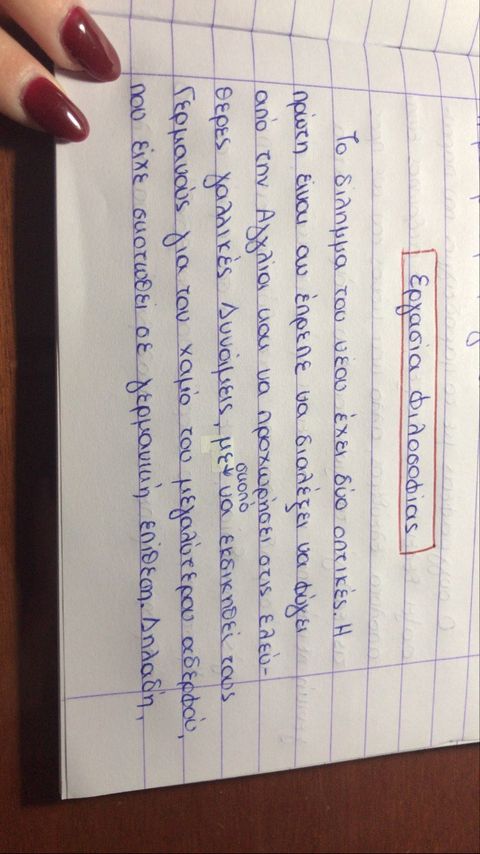 εργασία φιλοσοφίας
Το δίλημμα του νέου έχει δύο οπτικές. Η
πρώτη είναι αν έπρεπε να διαλέξει να φύγει
από την Αγγλία και να προχωρήσει στις ελεύ-
θερες γαλλικές Δυνάμεις, με σκοπό να εκδικηθεί τους
Γερμανούς για τον χαμό του μεγαλύτερου αδερφού,
που είχε σκοτωθεί σε γερμανική επίθεση. Δηλαδή,